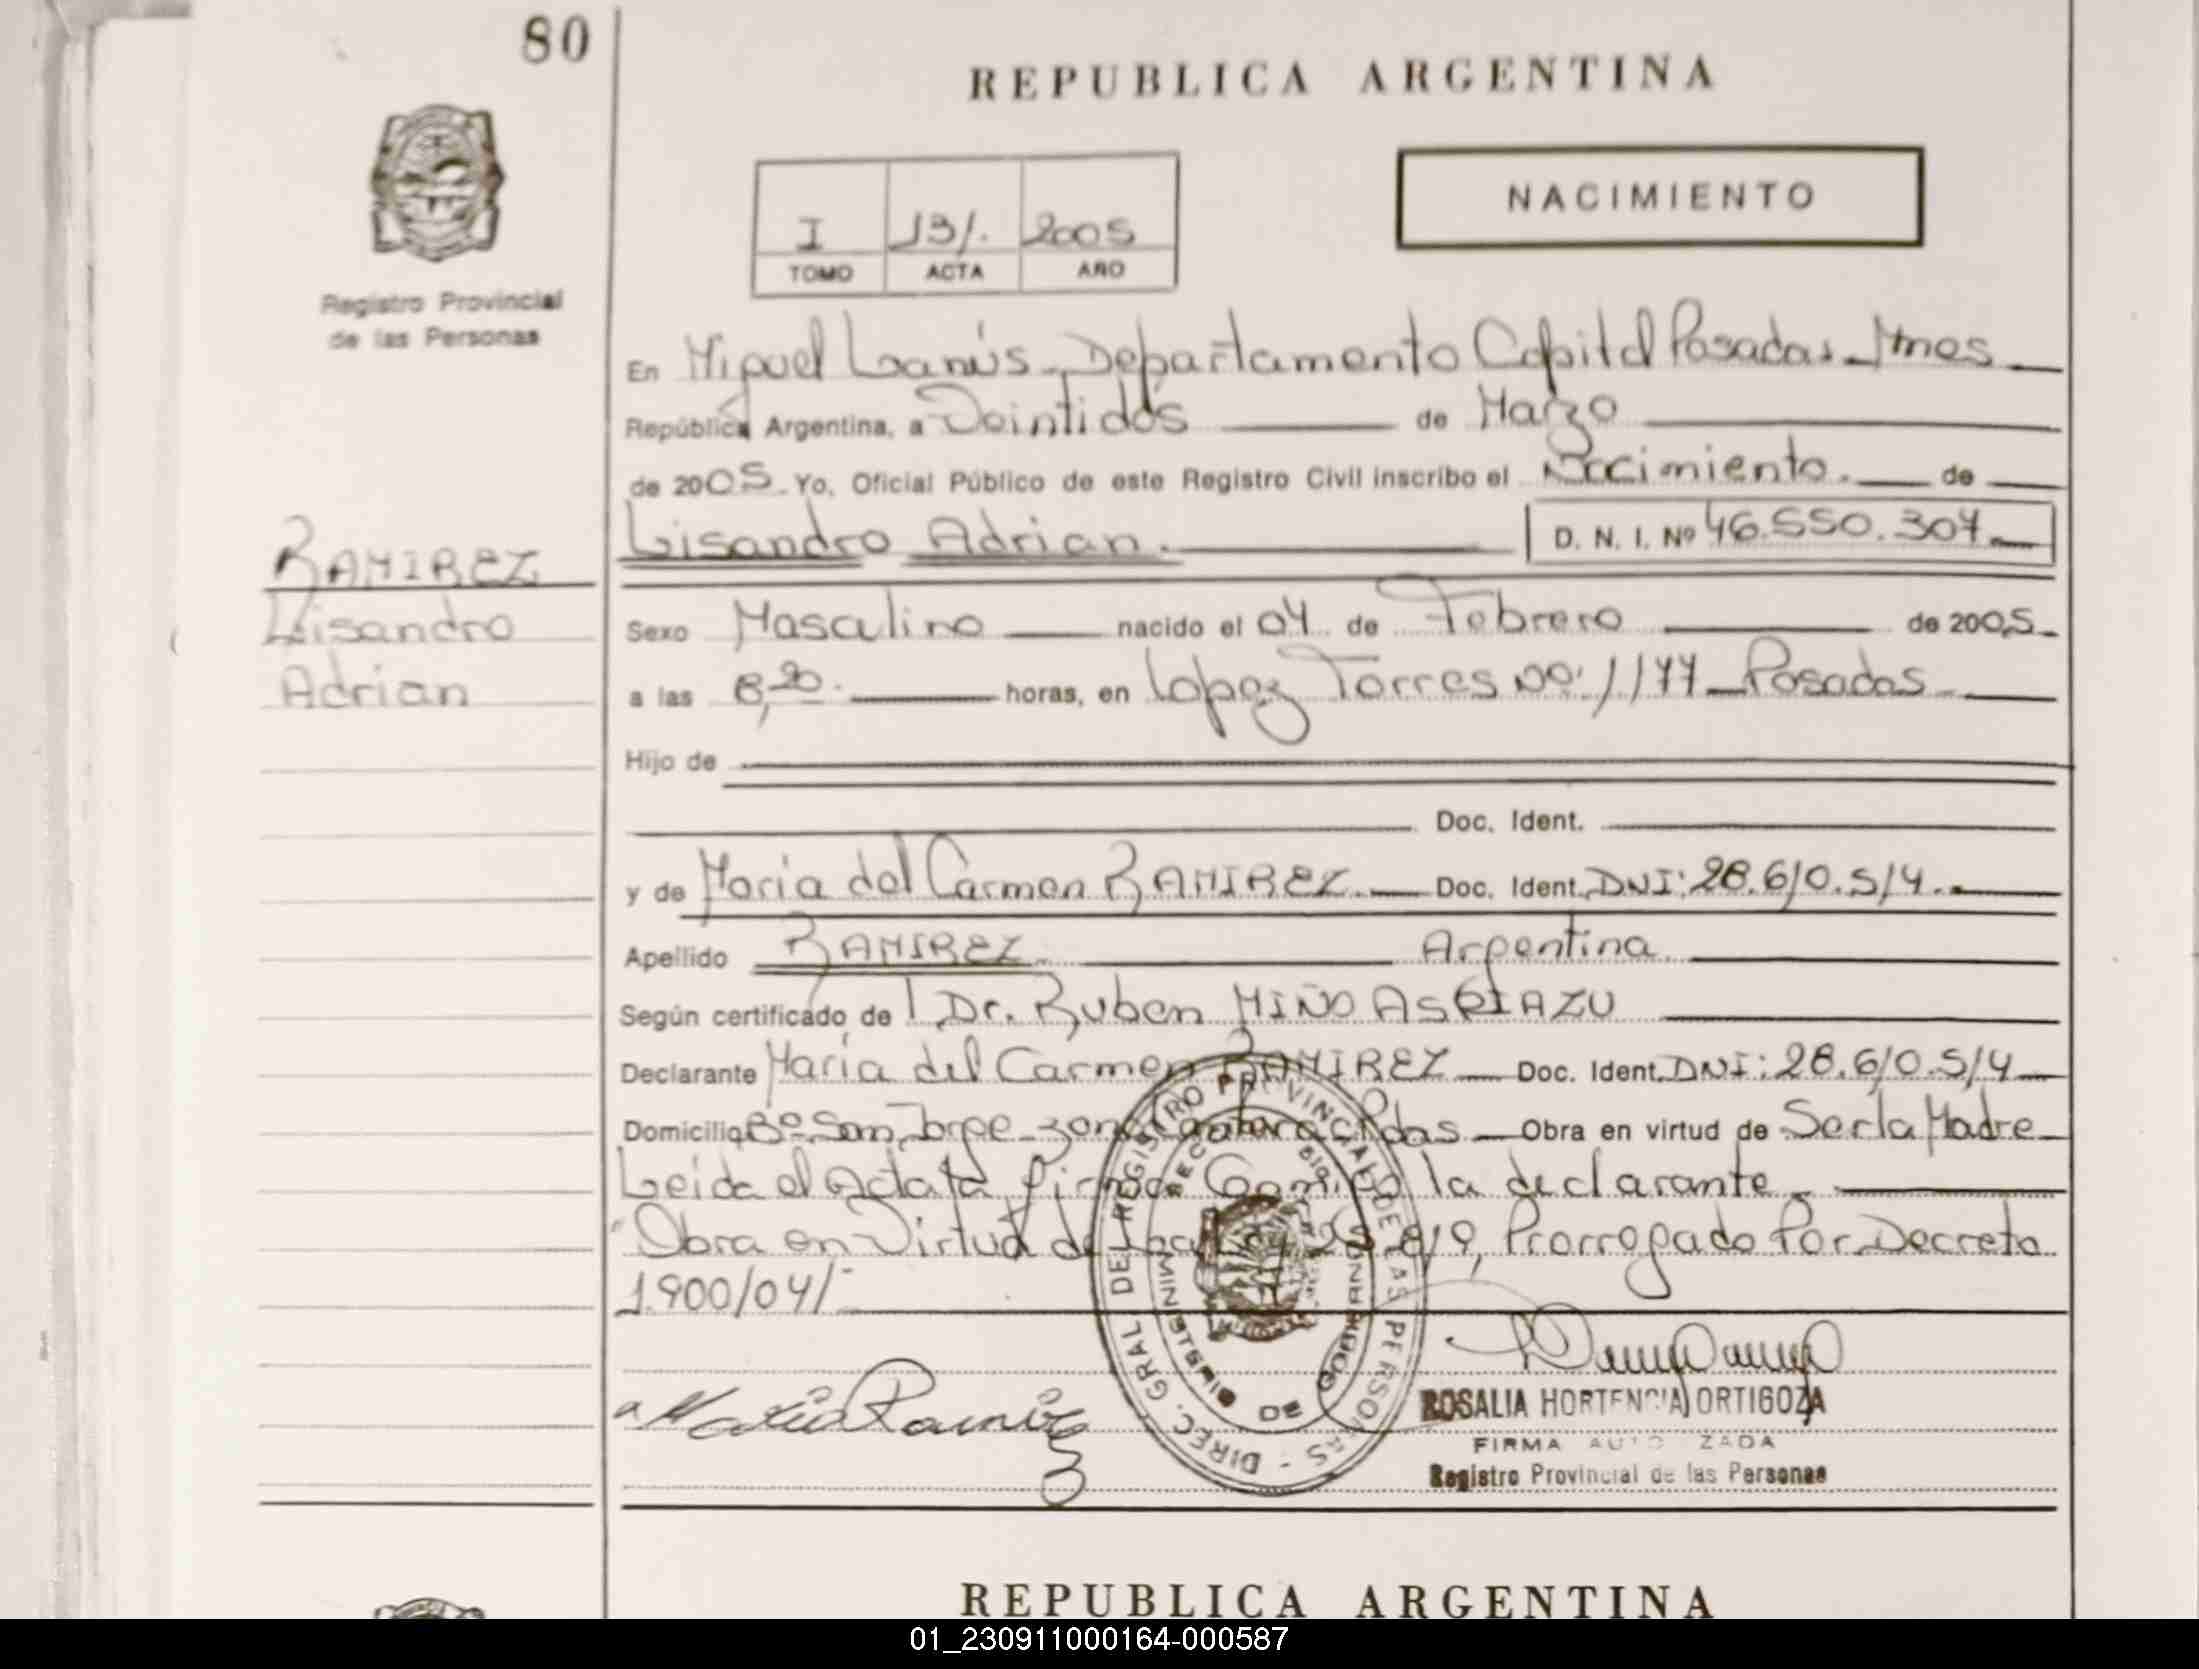 80
REPUBLICA ARGENTINA
NACIMIENTO
I 131. 2005
TOMO ACTA AÑO
Registro Provincial
de las Personas
En Miguel Lanús - Departamento Capital Posadas - Mnes
República Argentina, a Veintidós de Marzo
de 2005. Yo, Oficial Público de este Registro Civil inscribo el Nacimiento. de
Lisandro Adrian. D. N. I. Nº 46.550.307
RAMIREZ
Lisandro
Adrian
Sexo Masculino nacido el 04 de Febrero de 2005.
a las 8,20. horas, en Lopez Torres Nº: 1177 - Posadas
Hijo de
Doc. Ident.
y de Maria del Carmen RAMIREZ. Doc. Ident. DNI: 28.610.514.
Apellido RAMIREZ. Argentina
Según certificado de Dr. Ruben MIÑO ASRIAZU
Declarante Maria del Carmen RAMIREZ Doc. Ident. DNI: 28.610.514
Domicilio Bº San Jorge zona Obra en virtud de Ser la Madre
Leida el Acta la firma Conmigo la declarante.
"Obra en Virtud de la Ley 25.819, Prorrogado Por Decreto
1.900/04/-
DIREC. GRAL DEL REGISTRO PROVINCIAL DE LAS PERSONAS
MINISTERIO DE GOBIERNO
Maria Ramirez
ROSALIA HORTENCIA ORTIGOZA
FIRMA AUTORIZADA
Registro Provincial de las Personas
REPUBLICA ARGENTINA
01_230911000164-000587